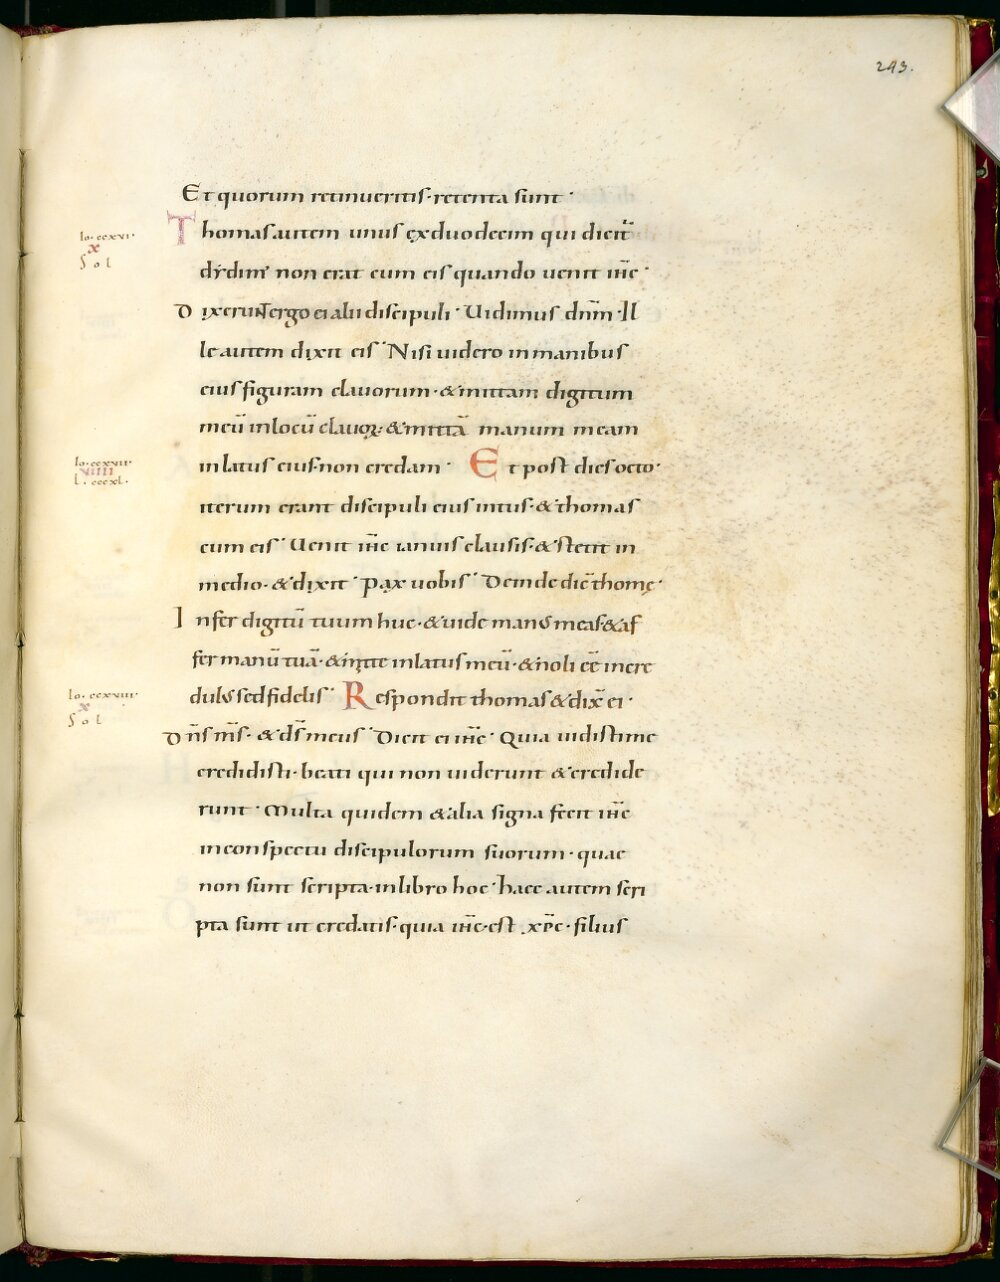 293.
Et quorum retinueritis·retenta sunt·
Io·ccxvi·
x
Sol
Thomas autem unus ex duodecim qui dicit̄
dydim' non erat cum eis quando uenit ihc̄·
Dixerunt ergo ei alii discipuli· Uidimus dnm̄·Il
le autem dixit eis· Nisi uidero in manibus
eius figuram clauorum·& mittam digitum
meū in locū clauoꝝ·& mittā manum meam
Io·ccxvii·
viiii
L·cccxl·
in latus eius·non credam· Et post dies octo·
iterum erant discipuli eius intus·& thomas
cum eis· Uenit ihc̄ ianuis clausis·& stetit in
medio·& dixit· Pax uobis· Deinde dic̄ thomę·
Infer digitū tuum huc·& uide manus meas·& af
fer manū tuā·& mitte in latus meū·& noli eē incre
Io·ccxviii·
x
Sol
dulus sed fidelis· Respondit thomas & dix̄ ei·
Dn̄s m̄s·& d̄s meus· Dicit ei ihc̄· Quia uidisti me
credidisti·beati qui non uiderunt & credide
runt· Multa quidem & alia signa fecit ihc̄
in conspectu discipulorum suorum·quae
non sunt scripta·in libro hoc· haec autem scri
pta sunt ut credatis·quia ihc̄·est·xpc̄·filius